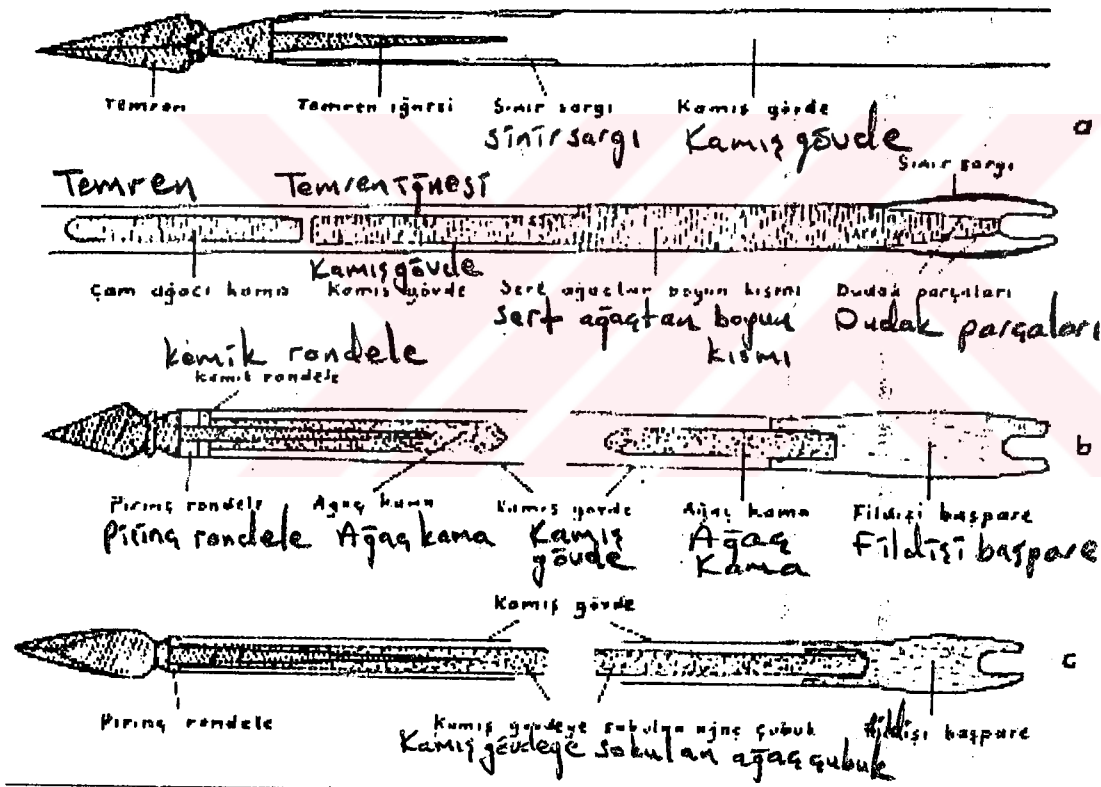 Temren Temren iğnesi Sinir sargı Kamış gövde
sinir sargı Kamış gövde a
Sinir sargı
Temren Temren iğnesi
Kamış gövde
Çam ağacı kama Kamış gövde Sert ağaçtan boyun kısmı Dudak parçaları
Sert ağaçtan boyun Dudak parçaları
kısmı
kemik rondele
kemik rondele
b
Pirinç rondele Ağaç kama Kamış gövde Ağaç kama Fildişi başpare
Pirinç rondele Ağaç kama Kamış Ağaç Fildişi başpare
gövde Kama
Kamış gövde
c
Pirinç rondele Kamış gövdeye sokulan ağaç çubuk Fildişi başpare
Kamış gövdeye sokulan ağaç çubuk